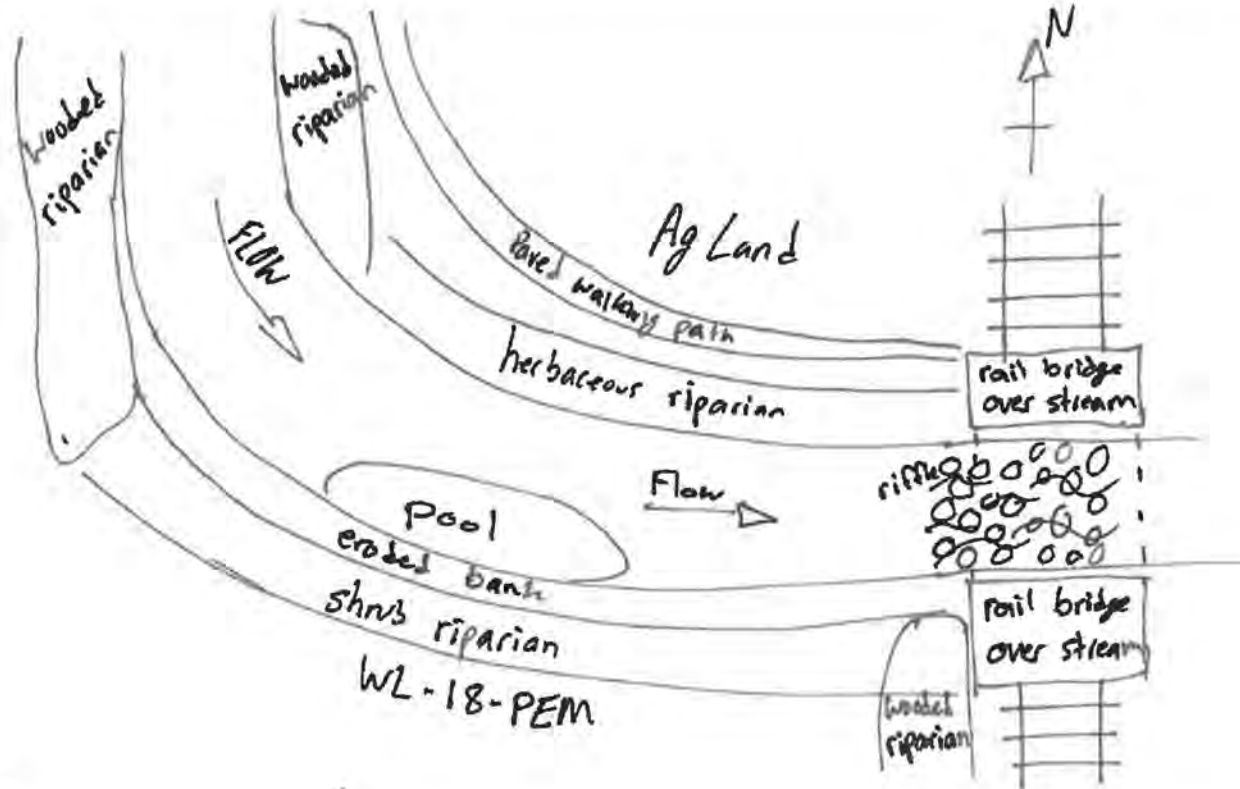 N
wooded
riparian
wooded
riparian
FLOW
Ag Land
Paved walking path
herbaceous riparian
rail bridge
over stream
riffle
Flow
pool
eroded bank
shrub riparian
WL-18-PEM
rail bridge
over stream
wooded
riparian